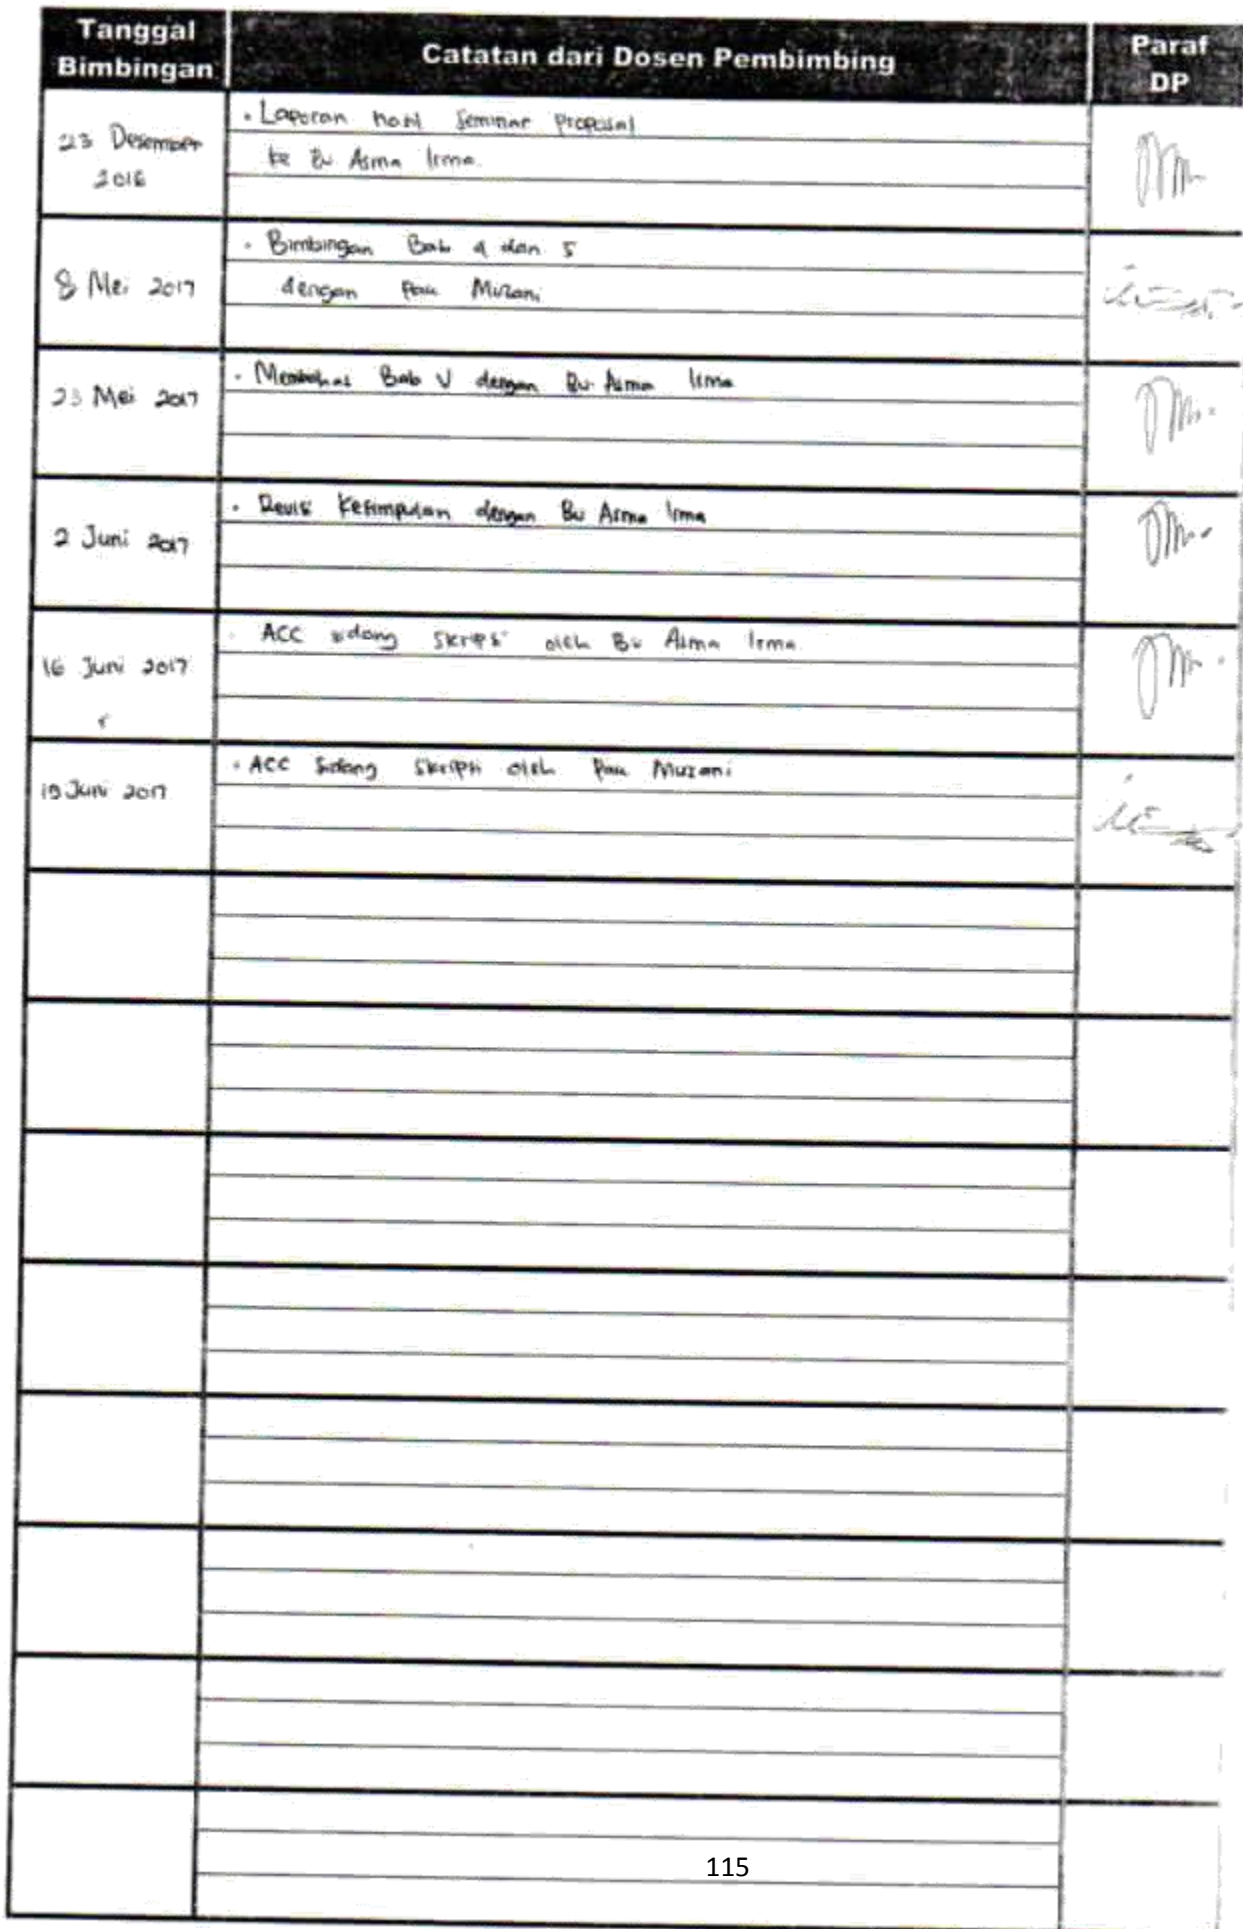 Tanggal Bimbingan
Catatan dari Dosen Pembimbing
Paraf DP
23 Desember 2016
• Laporan hasil Seminar Proposal
ke Bu Asma Irma.
8 Mei 2017
• Bimbingan Bab 4 dan 5
dengan Pak Muzani
23 Mei 2017
• Membahas Bab V dengan Bu Asma Irma
2 Juni 2017
• Revisi Kesimpulan dengan Bu Asma Irma
16 Juni 2017
• ACC sidang Skripsi oleh Bu Asma Irma
19 Juni 2017
• ACC Sidang Skripsi oleh Pak Muzani
115